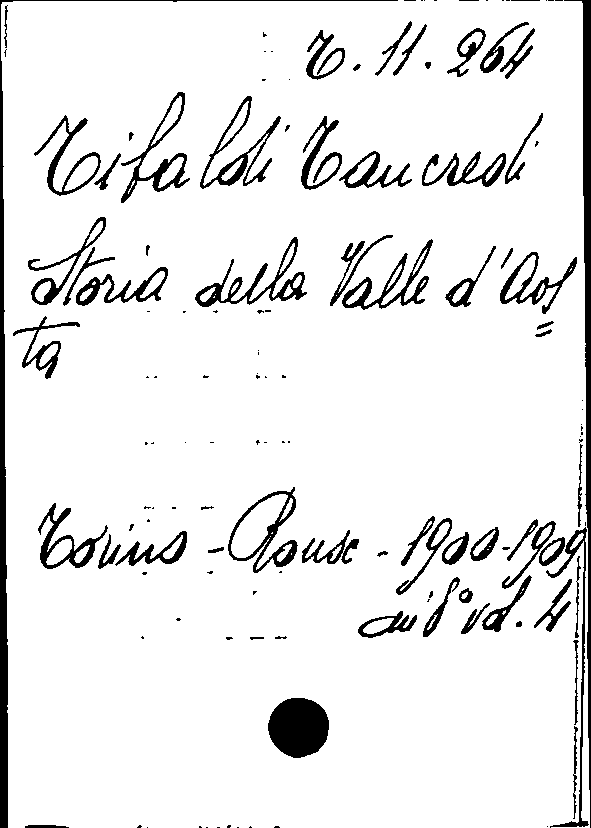 T. 11. 264
Tibaldi Tancredi
Storia della Valle d'Aos=
ta
Torino - Roux - 1900-1909
in 8° vol. 4